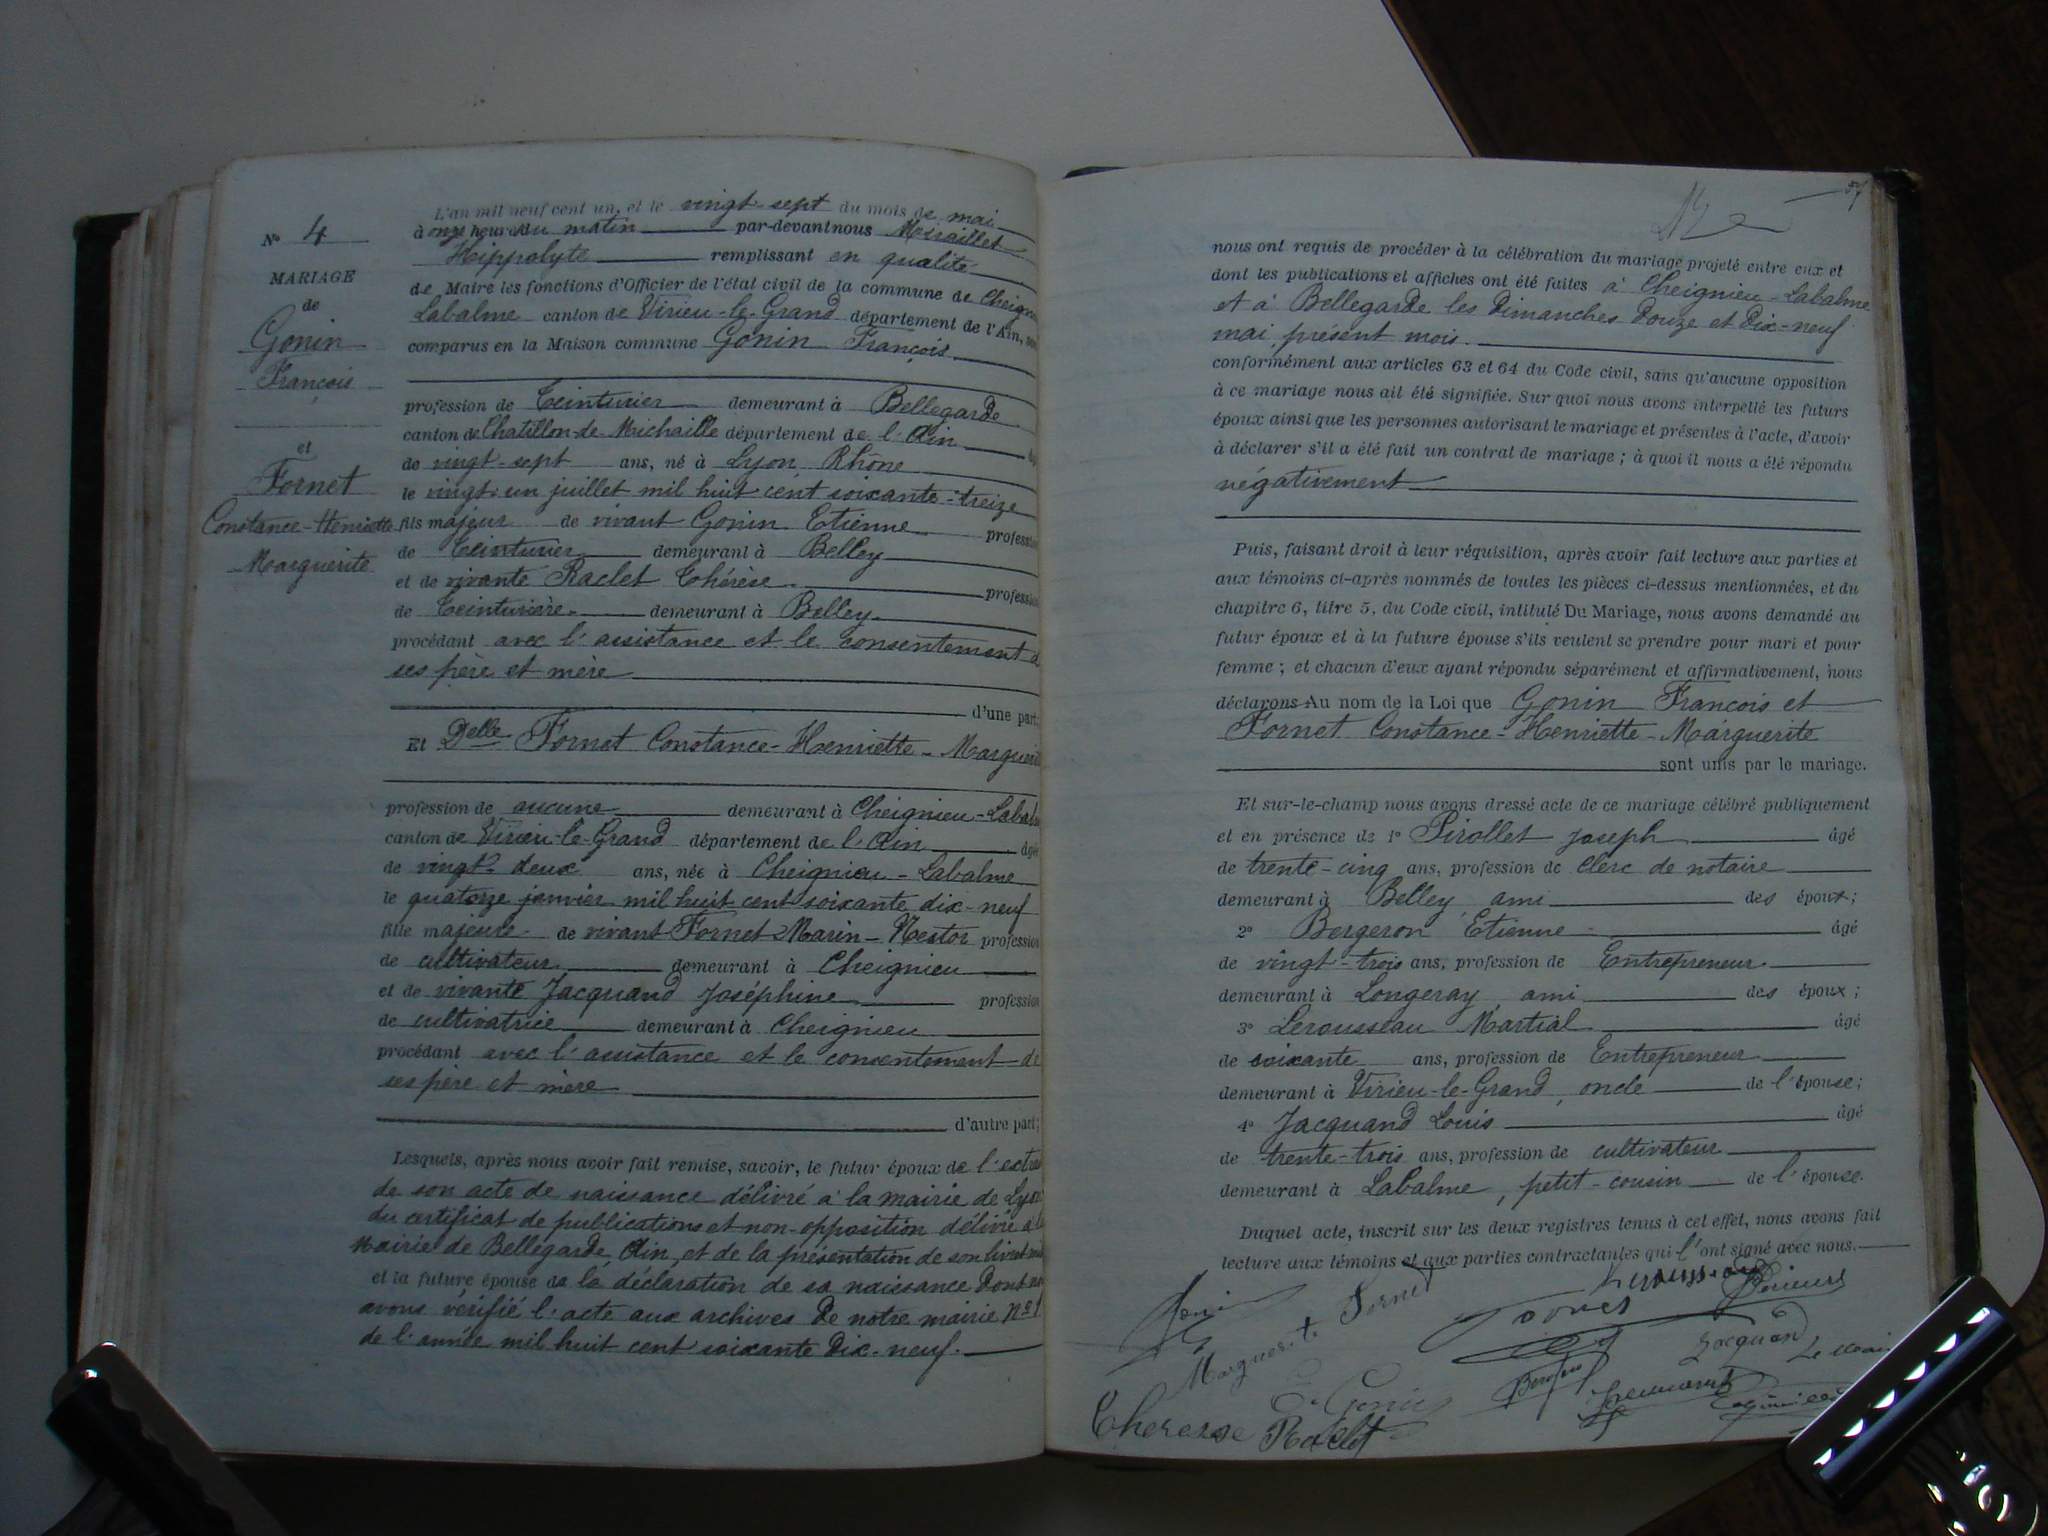 N° 4
MARIAGE
de
Gonin
François
et
Fornet
Constance-Henriette
Marguerite
L'an mil neuf cent un, et le vingt-sept du mois de mai
à onze heures du matin par-devant nous
Hippolyte remplissant en qualité
de Maire les fonctions d'Officier de l'état civil de la commune de Cheignieu
Labalme canton de Virieu-le-Grand département de l'Ain, sont
comparus en la Maison commune Gonin François
profession de Teinturier demeurant à Bellegarde
canton de Chatillon-de-Michaille département de l'Ain
de vingt-sept ans, né à Lyon Rhône
le vingt-un juillet mil huit cent soixante-treize
fils majeur de vivant Gonin Etienne profession
de Teinturier demeurant à Belley
et de vivante Raclet Thérèse profession
de Teinturière demeurant à Belley
procédant avec l'assistance et le consentement de
ses père et mère
d'une part;
Et Delle Fornet Constance-Henriette-Marguerite
profession de aucune demeurant à Cheignieu-Labalme
canton de Virieu-le-Grand département de l'Ain âgée
de vingt-deux ans, née à Cheignieu-Labalme
le quatorze janvier mil huit cent soixante dix-neuf
fille majeure de vivant Fornet Marin-Nestor profession
de cultivateur demeurant à Cheignieu
et de vivante Jacquand Joséphine profession
de cultivatrice demeurant à Cheignieu
procédant avec l'assistance et le consentement de
ses père et mère
d'autre part;
Lesquels, après nous avoir fait remise, savoir, le futur époux de l'extrait
de son acte de naissance délivré à la mairie de Lyon
du certificat de publications et non-opposition délivré à la
Mairie de Bellegarde, Ain, et de la présentation de son livret
et la future épouse de la déclaration de sa naissance dont nous
avons vérifié l'acte aux archives de notre mairie N° 1
de l'année mil huit cent soixante dix-neuf.
57
nous ont requis de procéder à la célébration du mariage projeté entre eux et
dont les publications et affiches ont été faites à Cheignieu-Labalme
et à Bellegarde les Dimanches Douze et Dix-neuf
mai, présent mois.
conformément aux articles 63 et 64 du Code civil, sans qu'aucune opposition
à ce mariage nous ait été signifiée. Sur quoi nous avons interpellé les futurs
époux ainsi que les personnes autorisant le mariage et présentes à l'acte, d'avoir
à déclarer s'il a été fait un contrat de mariage ; à quoi il nous a été répondu
négativement
Puis, faisant droit à leur réquisition, après avoir fait lecture aux parties et
aux témoins ci-après nommés de toutes les pièces ci-dessus mentionnées, et du
chapitre 6, titre 5, du Code civil, intitulé Du Mariage, nous avons demandé au
futur époux et à la future épouse s'ils veulent se prendre pour mari et pour
femme ; et chacun d'eux ayant répondu séparément et affirmativement, nous
déclarons Au nom de la Loi que Gonin François et
Fornet Constance-Henriette-Marguerite
sont unis par le mariage.
Et sur-le-champ nous avons dressé acte de ce mariage célébré publiquement
et en présence de 1° Pirollet Joseph âgé
de trente-cinq ans, profession de clerc de notaire
demeurant à Belley, ami des époux;
2° Bergeron Etienne âgé
de vingt-trois ans, profession de Entrepreneur
demeurant à Longeray, ami des époux;
3° Lerousseau Martial âgé
de soixante ans, profession de Entrepreneur
demeurant à Virieu-le-Grand, oncle de l'épouse;
4° Jacquand Louis âgé
de trente-trois ans, profession de cultivateur
demeurant à Labalme, petit-cousin de l'épouse.
Duquel acte, inscrit sur les deux registres tenus à cet effet, nous avons fait
lecture aux témoins et aux parties contractantes qui l'ont signé avec nous.
Marguerite Fornet
Jacquand
Le Maire
E. Gonin
Therese Raclet